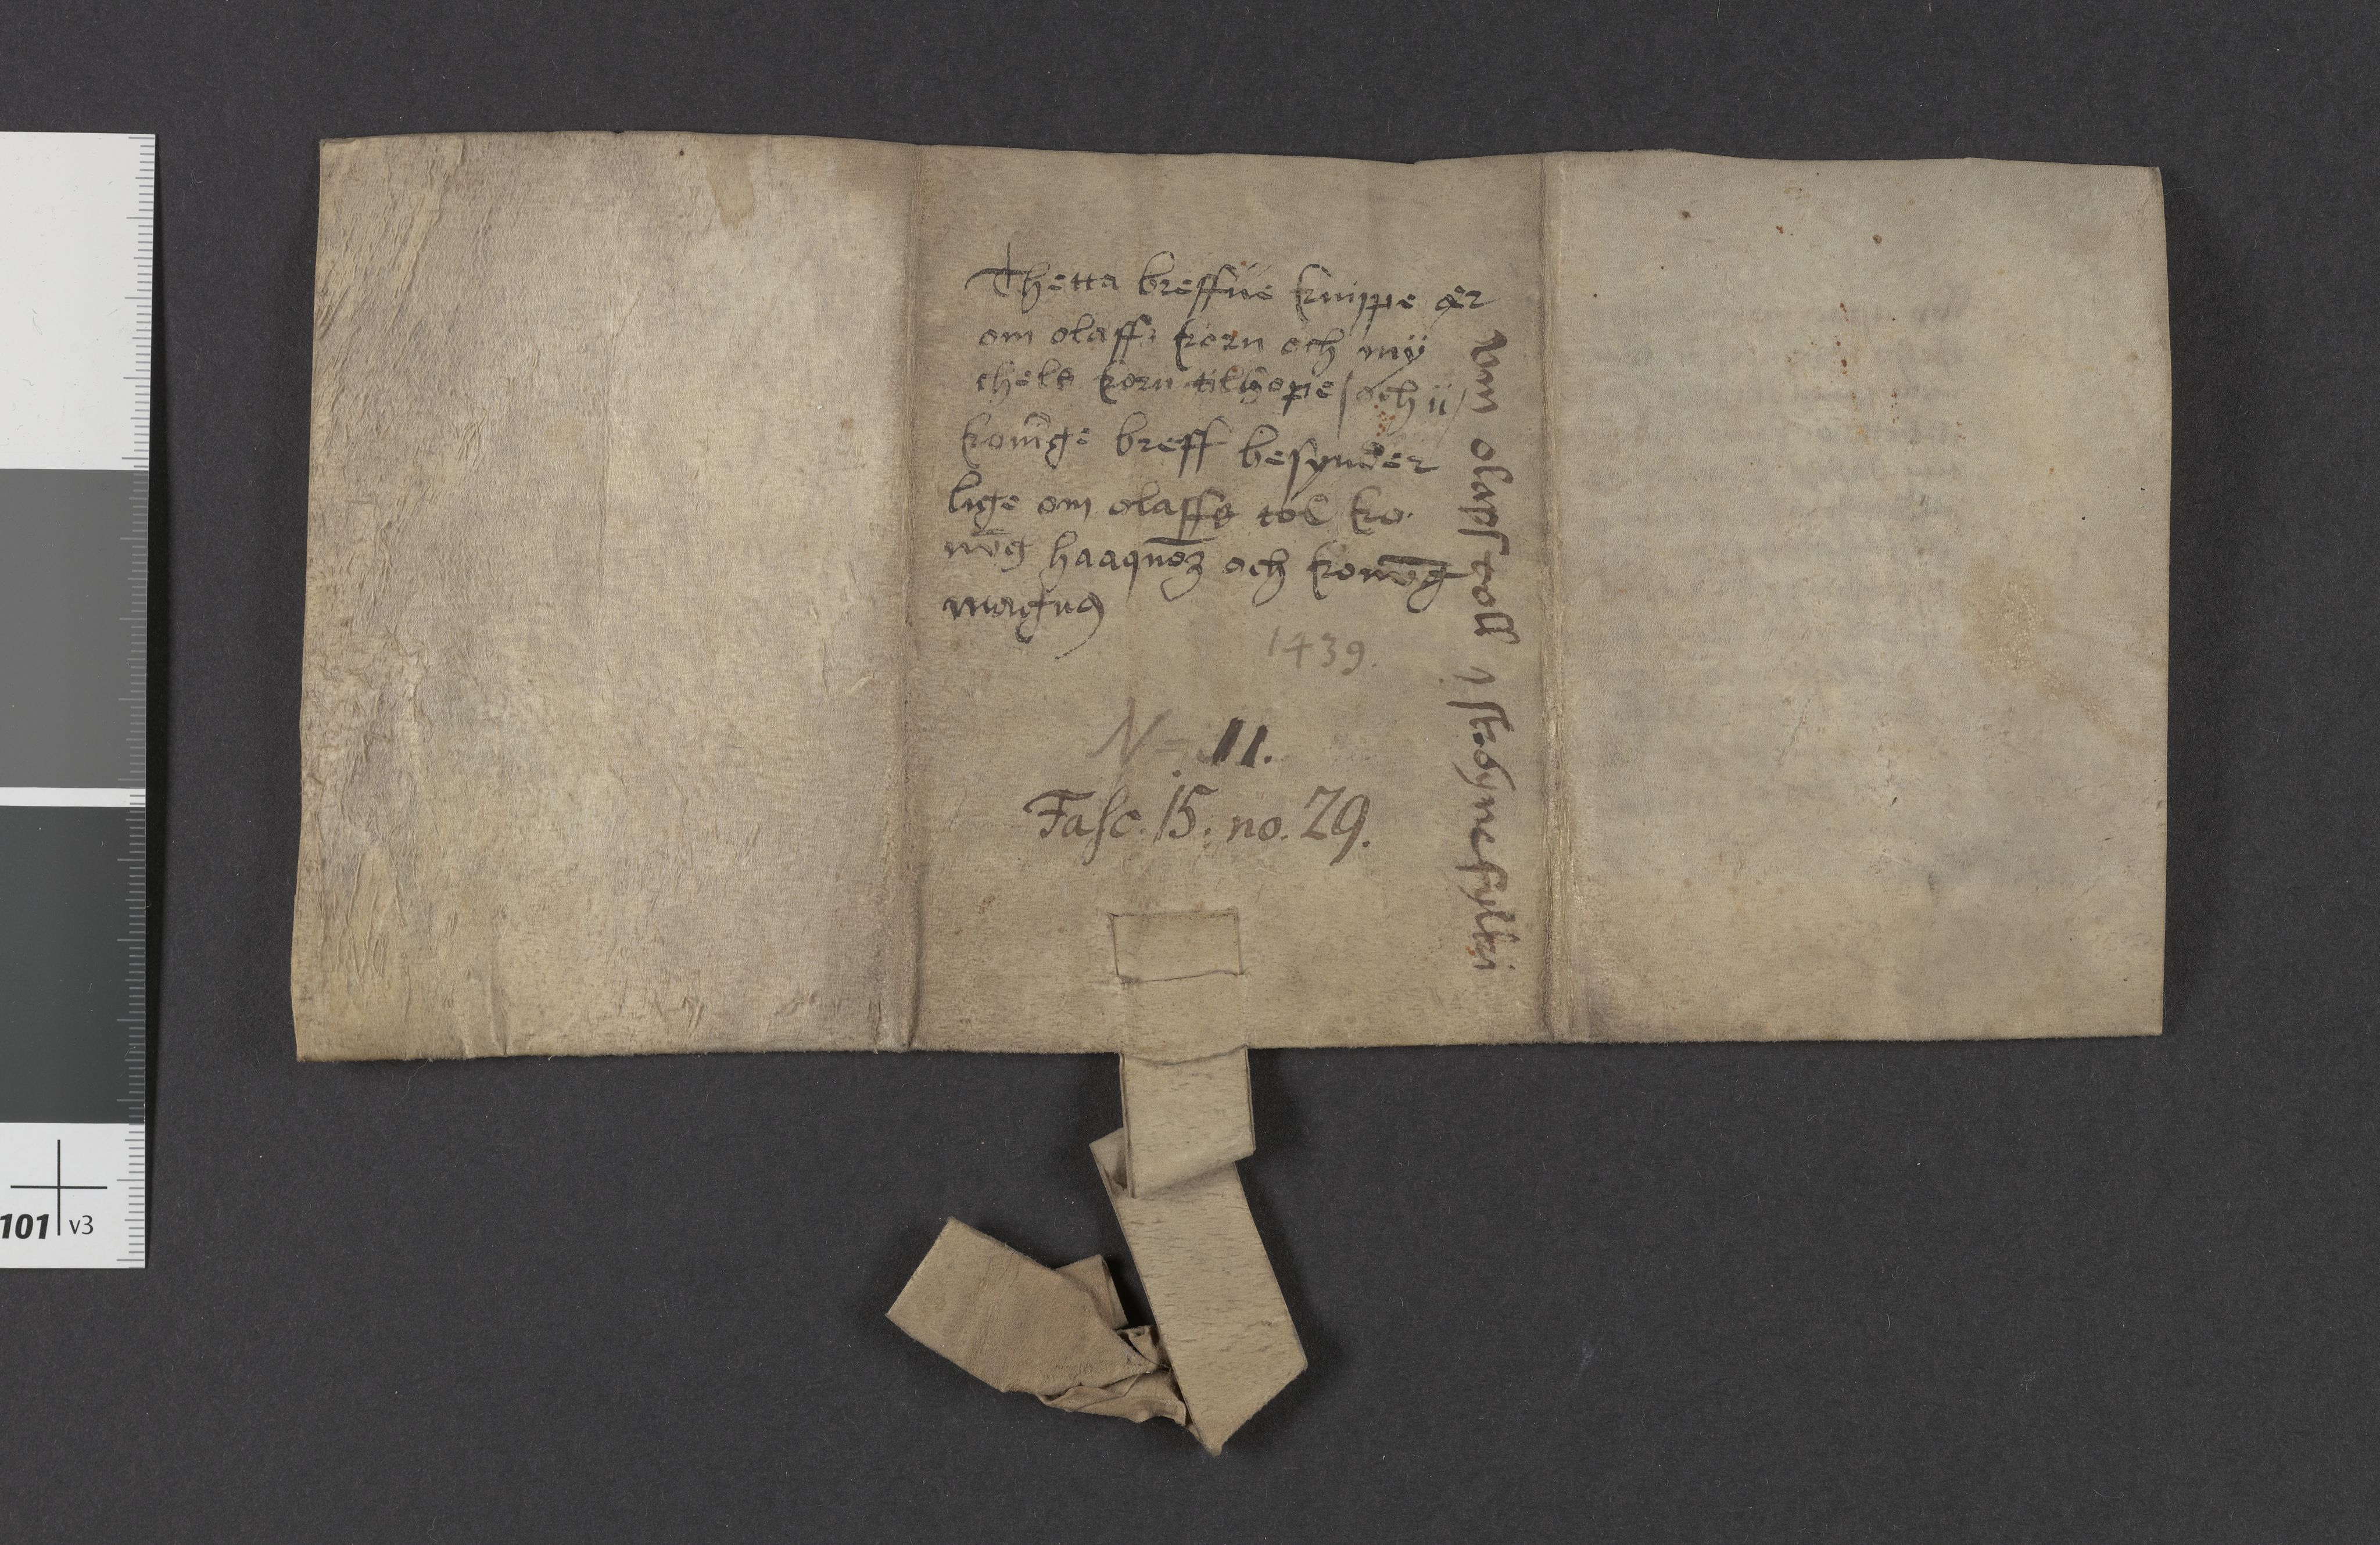 Thetta breffue knippe ær
om olaffs korn och my
chels korn tilhope / och ii /
konīge breff besynder
lige om olaffs tol ko
nīg haaquōz och konīg
magnus
1439.
N 11.
Fasc. 15. no. 29.
vm olafs toll i skøynefylki
101 v3